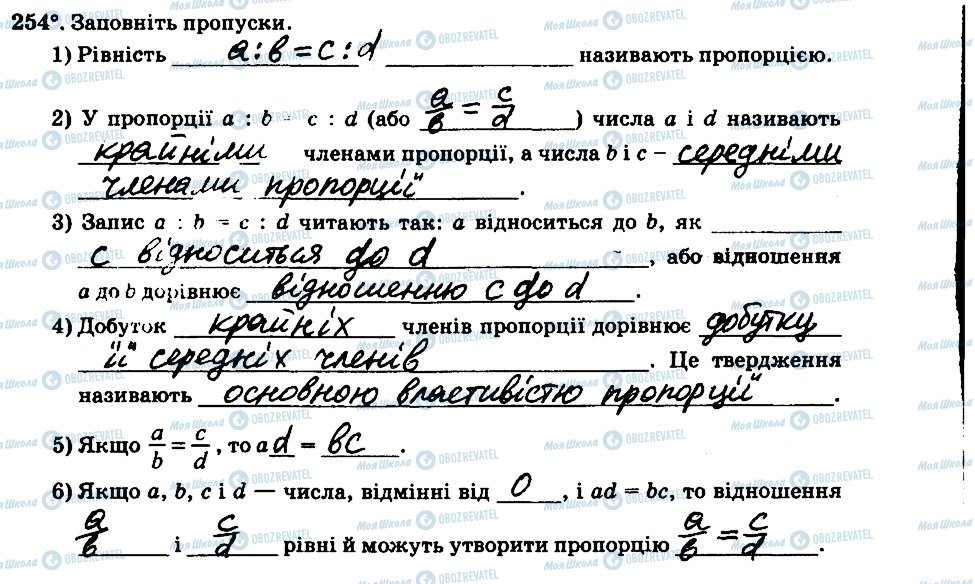 254°. Заповніть пропуски.
1) Рівність a : b = c : d називають пропорцією.
2) У пропорції a : b = c : d (або a/b = c/d) числа a і d називають
крайніми членами пропорції, а числа b і c – середніми
членами пропорції.
3) Запис a : b = c : d читають так: a відноситься до b, як
c відноситься до d, або відношення
a до b дорівнює відношенню c до d.
4) Добуток крайніх членів пропорції дорівнює добутку
її середніх членів. Це твердження
називають основною властивістю пропорції.
5) Якщо a/b = c/d, то ad = bc.
6) Якщо a, b, c і d — числа, відмінні від 0, і ad = bc, то відношення
a/b і c/d рівні й можуть утворити пропорцію a/b = c/d.